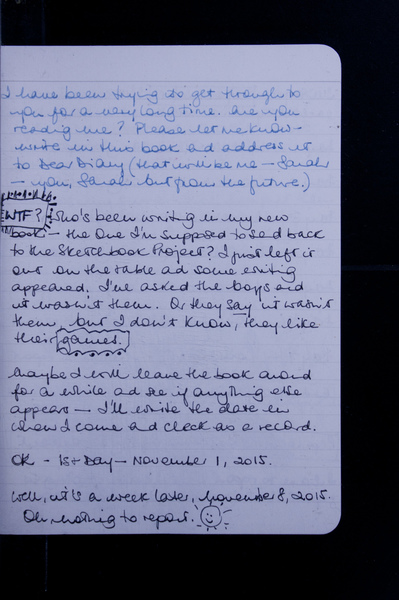 I have been trying to get through to
you for a very long time. Are you
reading me? Please let me know -
write in this book ad address it
to Dear Diary (that will be me - Sarah
- you, Sarah but from the future.)
WTF? Who's been writing in my new
book - the one I'm supposed to send back
to the Sketchbook Project? I just left it
out on the table ad some writing
appeared. I've asked the boys and
it wasn't them. Or they say it wasn't
them, but I don't know, they like
their games.
Maybe I will leave the book around
for a while ad see if anything else
appears - I'll write the date in
when I come and check as a record.
OK - 1st Day - November 1, 2015.
Well, it's a week later, November 8, 2015.
Oh nothing to report.